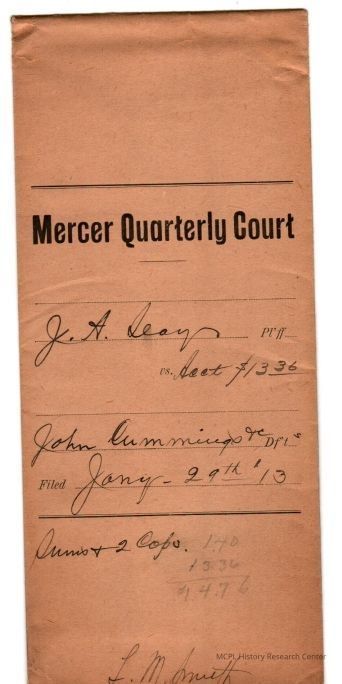 Mercer Quarterly Court
J. A. Seay Pl'ff
vs. Acct $13 36
John Cummings &c Df't s
Filed Jany - 29th '13
Sums + 2 Cops. 1.40
13.36
14.76
MCPL History Research Center
L. M. Smith